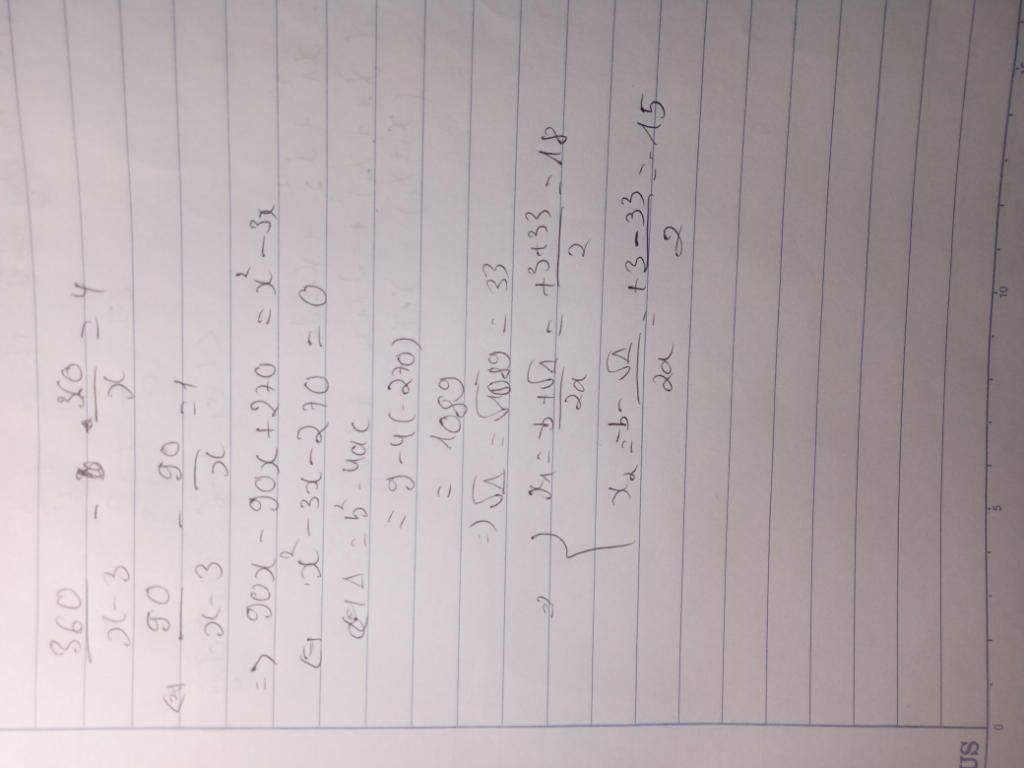 360/(x-3) - 360/x = 4
(=) 90/(x-3) - 90/x = 1
=> 90x - 90x + 270 = x² - 3x
(=) x² - 3x - 270 = 0
(=) Δ = b² - 4ac
= 9 - 4(-270)
= 1089
=> √Δ = √1089 = 33
=> { x1 = -b + √Δ / 2a = +3+33 / 2 = 18
x2 = b - √Δ / 2a = +3-33 / 2 = -15
0 5 10 15
US